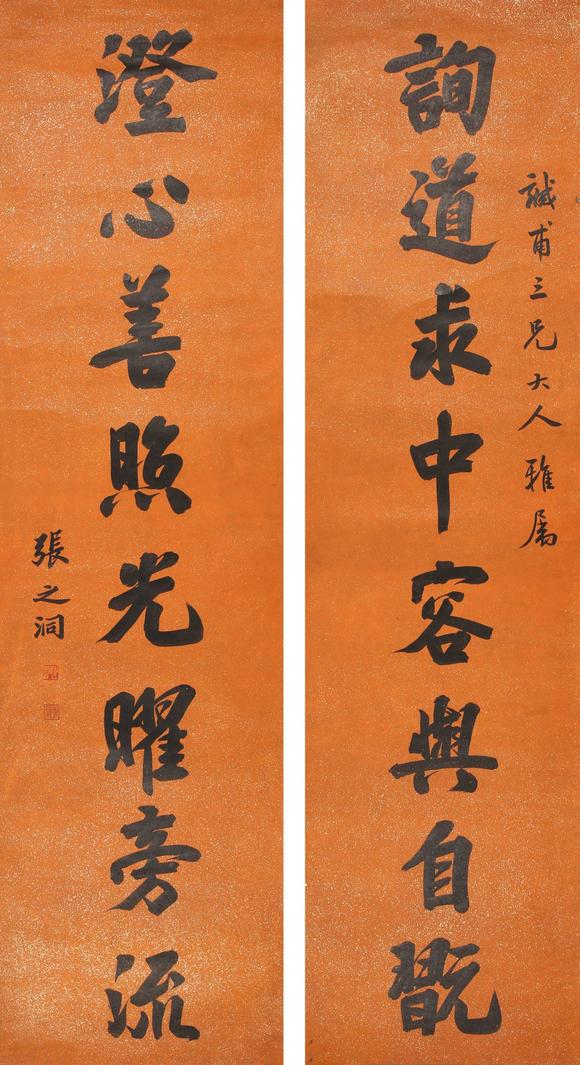 甫三兄大人雅属
詢道求中容與自翫
澄心善照光曜旁流
張之洞